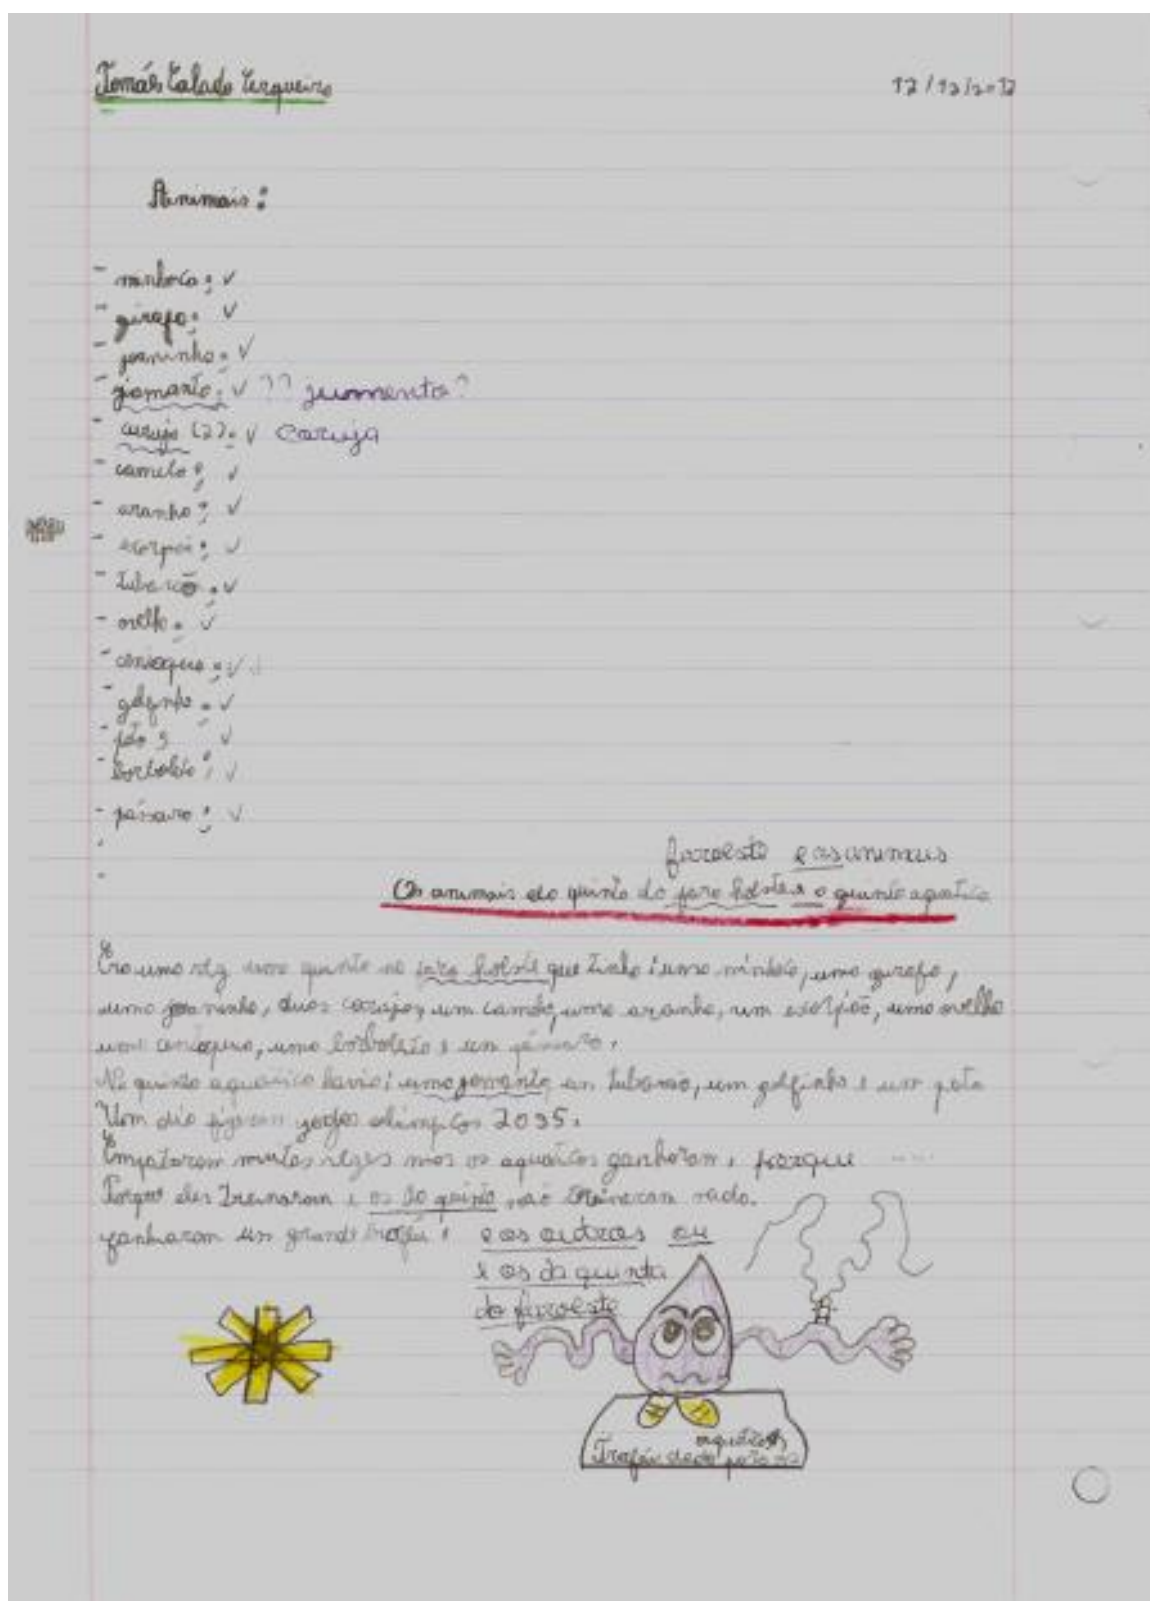 Tomás Calado Cerqueira 12/12/2012
Animais:
- minhoca; ✓
- girafa; ✓
- joaninha; ✓
- jiomanta; ✓ ?? jumenta?
- curuja (2); ✓ Coruja
- camelo; ✓
- aranha; ✓
- escorpoi; ✓
- tubarão; ✓
- ovelha; ✓
- ✓
- golfinho; ✓
- ✓
- borboleta; ✓
- pássaro; ✓
-
-
faroeste e os animais
Os animais do quinta do faro holste e o quinta aquatica
Era uma vez uma quinta no faro holste que tinha: uma minhoca, uma girafa,
uma joaninha, duas corujas, um camelo, uma aranha, um escorpião, uma ovelha
uma uma borboleta e um pássaro.
Na quinta aquática havia: uma jomanta um tubarão, um golfinho e um
Um dia fizeram jogos olimpicos 2035.
Empataram muitas vezes mas os aquáticos ganharam, porque ....
Porque eles treinaram e os do quinta não treinaram nada.
ganharam um grande troféu e os outros ou
e os da quinta
do faroeste
aquáticos
Troféu dado para os